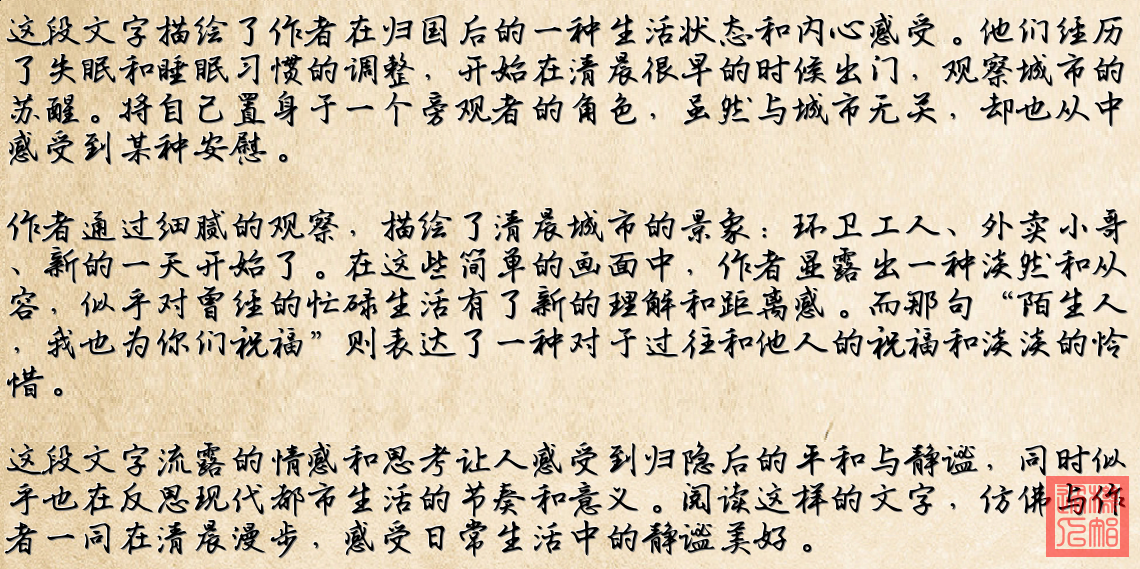 这段文字描绘了作者在归国后的一种生活状态和内心感受。他们经历
了失眠和睡眠习惯的调整，开始在清晨很早的时候出门，观察城市的
苏醒。将自己置身于一个旁观者的角色，虽然与城市无关，却也从中
感受到某种安慰。
作者通过细腻的观察，描绘了清晨城市的景象：环卫工人、外卖小哥
、新的一天开始了。在这些简单的画面中，作者显露出一种淡然和从
容，似乎对曾经的忙碌生活有了新的理解和距离感。而那句“陌生人
，我也为你们祝福”则表达了一种对于过往和他人的祝福和淡淡的怜
惜。
这段文字流露的情感和思考让人感受到归隐后的平和与静谧，同时似
乎也在反思现代都市生活的节奏和意义。阅读这样的文字，仿佛与作
者一同在清晨漫步，感受日常生活中的静谧美好。